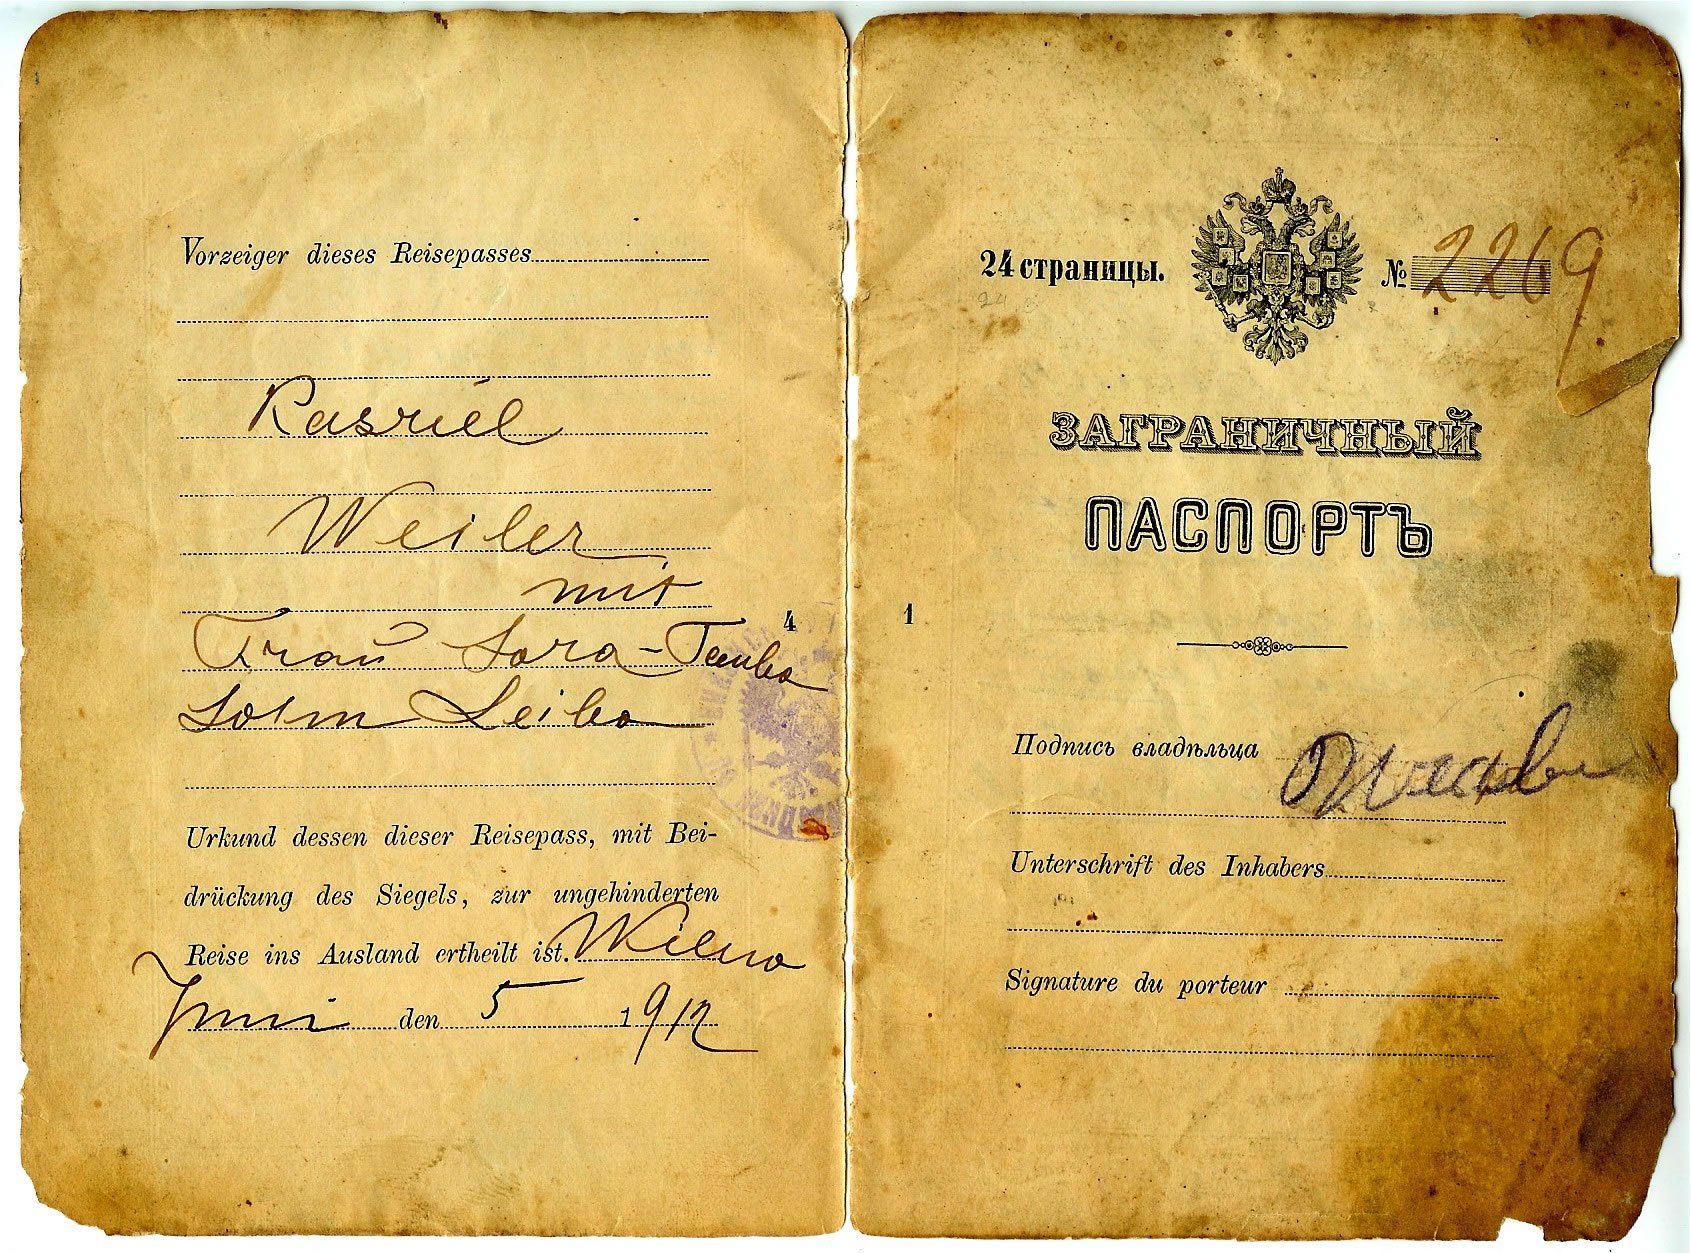 Vorzeiger dieses Reisepasses
Rasriel
Weiler
mit
Frau Sora-Tauba
Sohn Leiba
4
Urkund dessen dieser Reisepass, mit Bei-
drückung des Siegels, zur ungehinderten
Reise ins Ausland ertheilt ist. Wilno
Juni den 5 1912
24 страницы. № 2269
ЗАГРАНИЧНЫЙ
ПАСПОРТЪ
1
Подпись владѣльца
Unterschrift des Inhabers
Signature du porteur